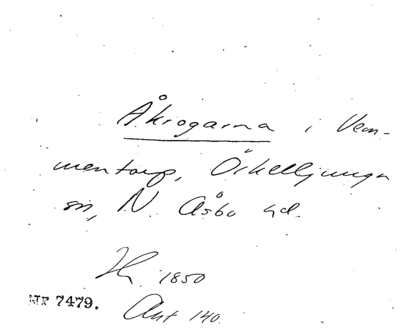 Åkrogarna i Vem-
mentorp, Örkelljunga
sn, N. Åsbo hd.
Hz. 1850
NF 7479. Ant 140.